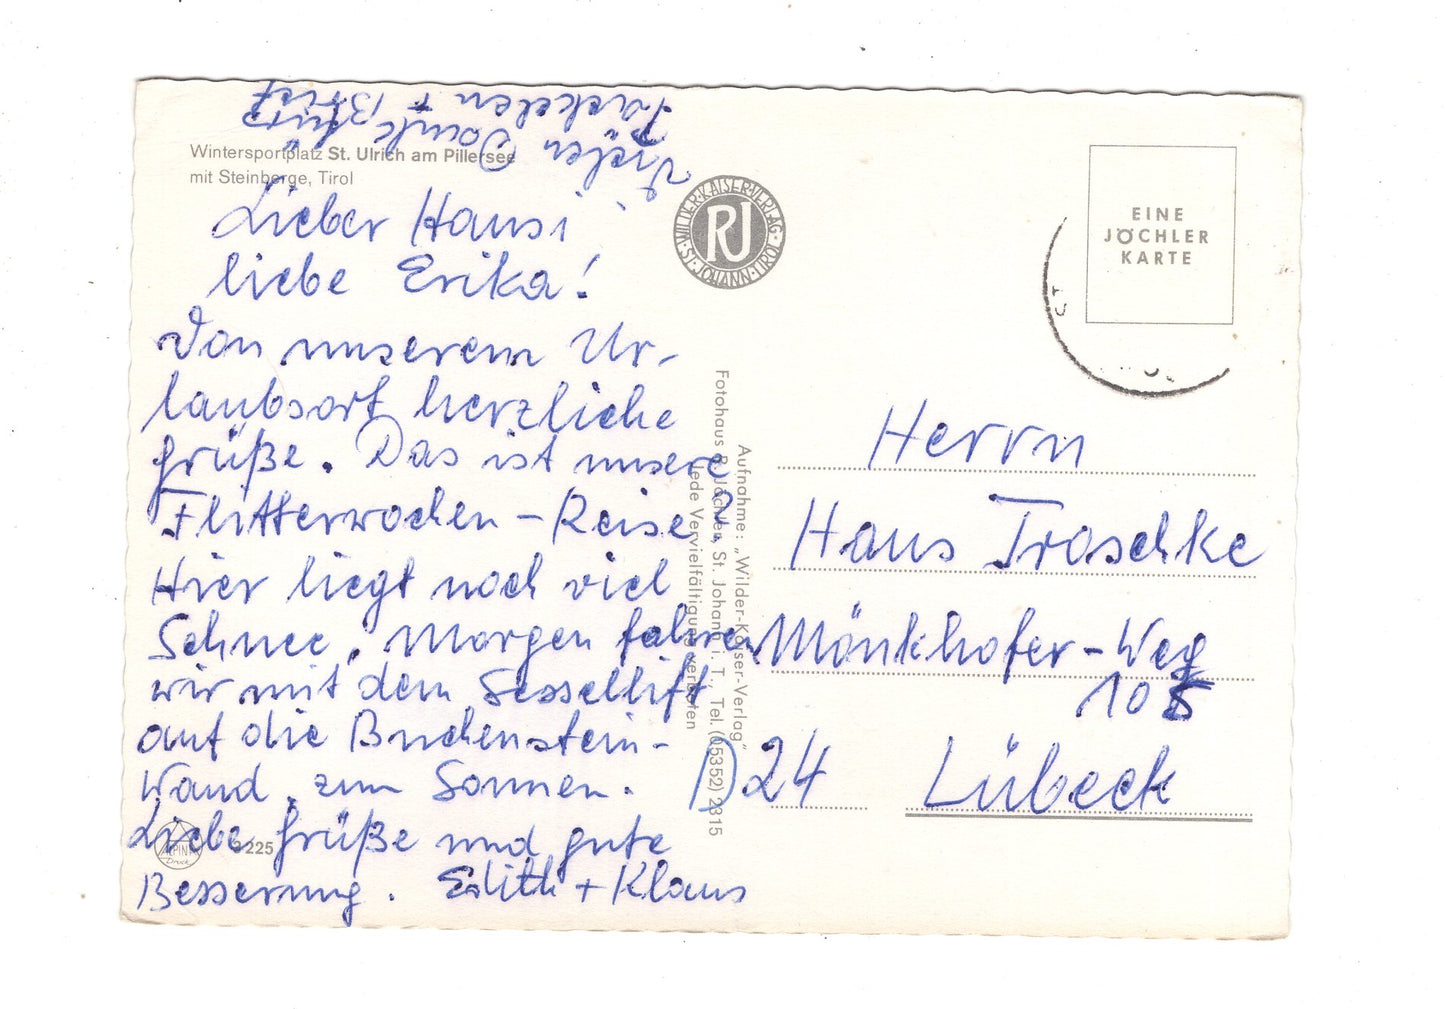 Vielen Dank für
Päckchen + Brief
Wintersportplatz St. Ulrich am Pillersee
mit Steinberge, Tirol
Lieber Hansi
liebe Erika!
Von unserem Ur-
laubsort herzliche
Grüße. Das ist unsere
Flitterwochen-Reise
Hier liegt noch viel
Schnee. Morgen fahren
wir mit dem Sessellift
auf die Buchenstein-
Wand zum Sonnen.
Liebe Grüße und gute
Besserung. Edith + Klaus
ALPINA
Druck
225
WILDER-KAISER-VERLAG
ST. JOHANN-TIROL
RJ
Aufnahme: „Wilder-Kaiser-Verlag"
Fotohaus R. Jöchler, St. Johann i. T. Tel. (05352) 2315
Jede Vervielfältigung verboten
EINE
JÖCHLER
KARTE
Herrn
Hans Traschke
Mönkhofer-Weg
105
D 24 Lübeck